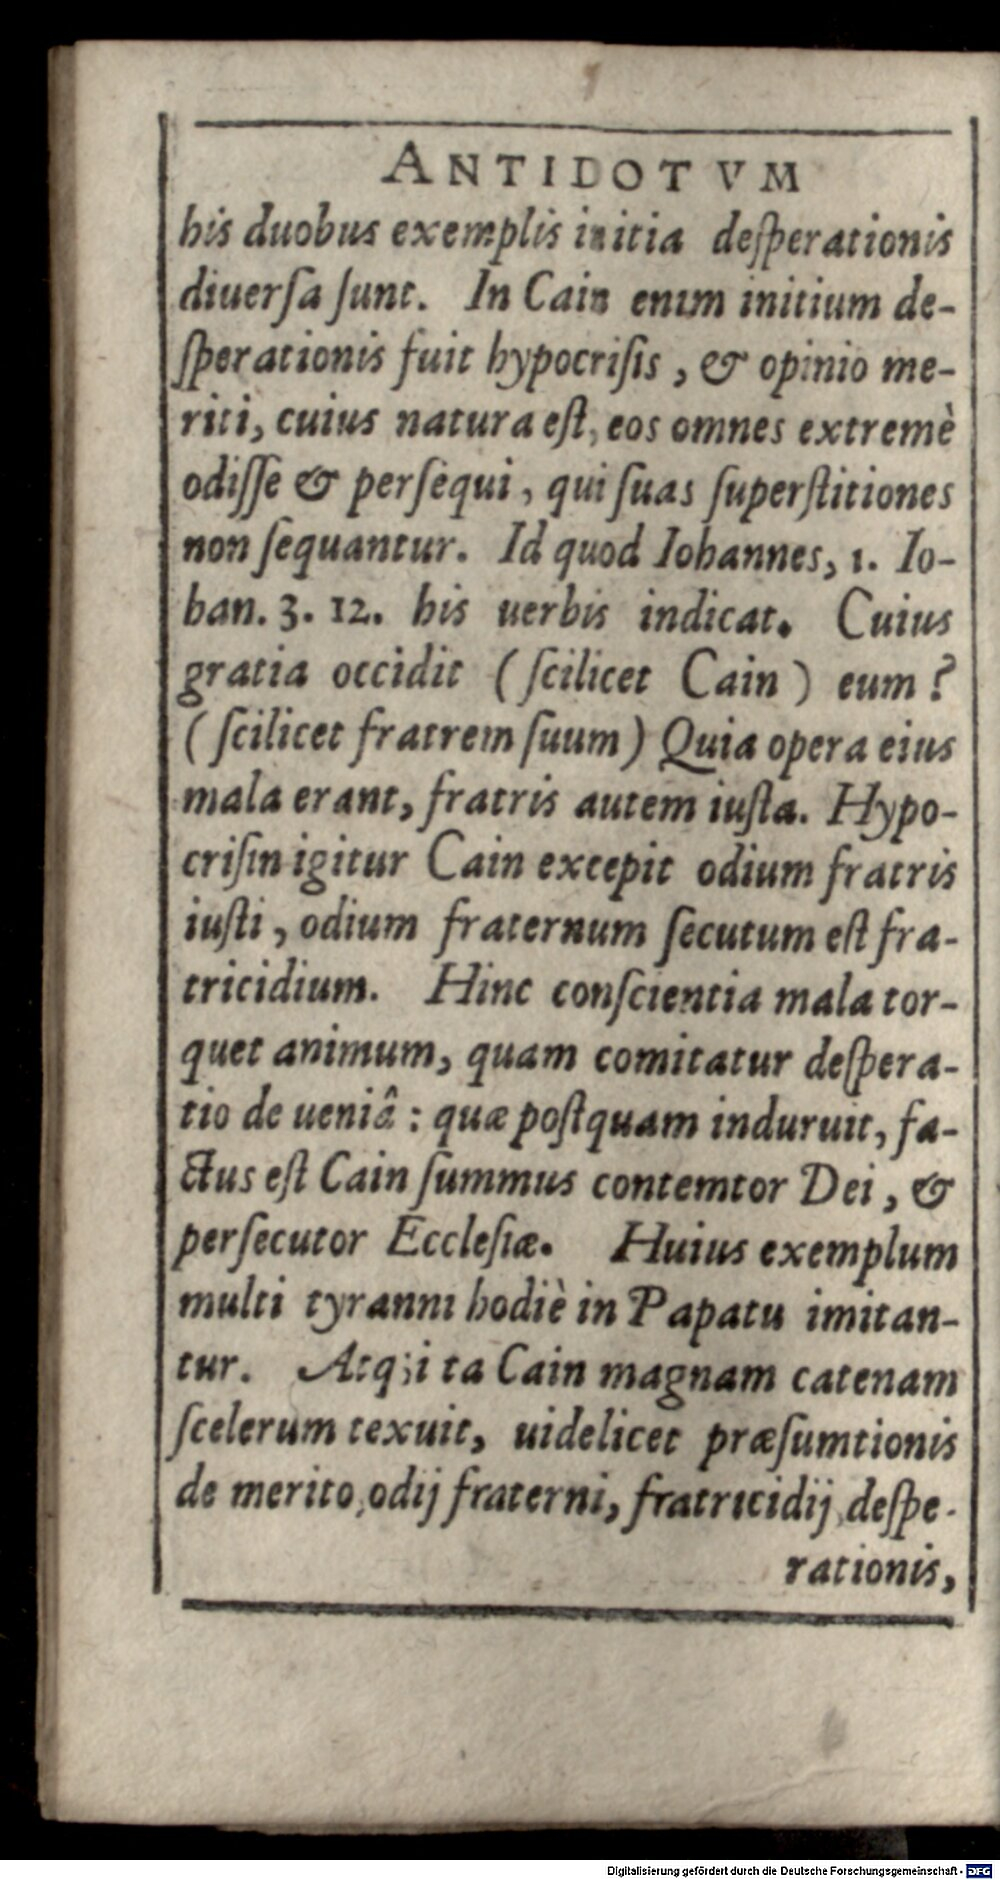 ANTIDOTVM
his duobus exemplis initia deſperationis
diuerſa ſunt. In Cain enim initium de-
ſperationis fuit hypocriſis, & opinio me-
riti, cuius natura eſt, eos omnes extremè
odiſſe & perſequi, qui ſuas ſuperſtitiones
non ſequantur. Id quod Iohannes, 1. Io-
han. 3. 12. his uerbis indicat. Cuius
gratia occidit (ſcilicet Cain) eum?
(ſcilicet fratrem ſuum) Quia opera eius
mala erant, fratris autem iuſta. Hypo-
criſin igitur Cain excepit odium fratris
iuſti, odium fraternum ſecutum eſt fra-
tricidium. Hinc conſcientia mala tor-
quet animum, quam comitatur deſpera-
tio de ueniâ: quæ poſtquam induruit, fa-
ctus eſt Cain ſummus contemtor Dei, &
perſecutor Eccleſiæ. Huius exemplum
multi tyranni hodiè in Papatu imitan-
tur. Atq; ita Cain magnam catenam
ſcelerum texuit, uidelicet præſumtionis
de merito, odij fraterni, fratricidij, deſpe-
rationis,
Digitalisierung gefördert durch die Deutsche Forschungsgemeinschaft - DFG